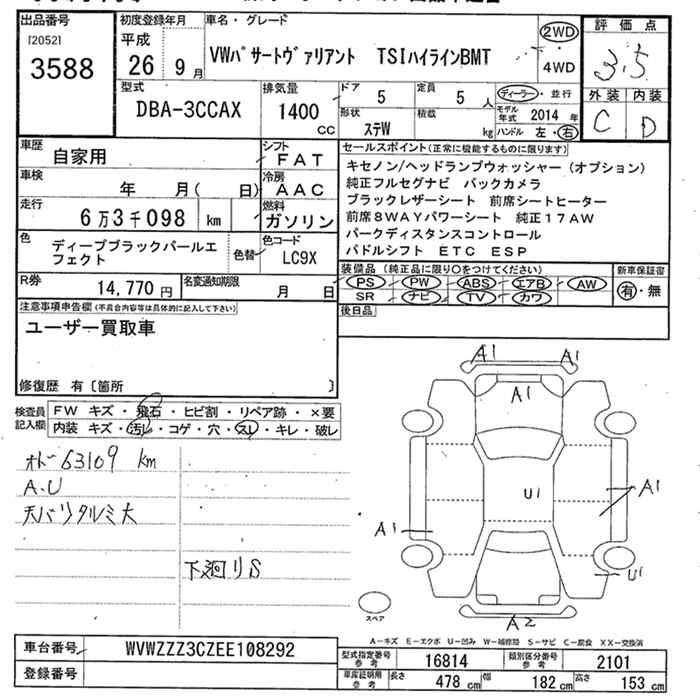 出品番号
[2052]
3588
初度登録年月
平成
26 9月
車名・グレード
VWパサートヴァリアント TSIハイラインBMT
2WD
4WD
評価点
3.5
外装 内装
C D
型式
DBA-3CCAX
排気量
1400
CC
ドア
5
定員
5 人
ディーラー・並行
形状
ステW
積載
kg
モデル年式 2014 年
ハンドル 左・右
車歴
自家用
シフト
FAT
車検
年 月( 日)
冷房
AAC
走行
6万3千098 km
燃料
ガソリン
色
ディープブラックパールエフェクト
色替
色コード
LC9X
R券
14,770 円
名変通知期限
月 日
セールスポイント(正常に機能するものに限ります)
キセノン/ヘッドランプウォッシャー(オプション)
純正フルセグナビ バックカメラ
ブラックレザーシート 前席シートヒーター
前席8WAYパワーシート 純正17AW
パークディスタンスコントロール
パドルシフト ETC ESP
装備品(純正品に限り○をつけてください)
PS PW ABS エアB AW
SR ナビ TV カワ
新車保証書
有・無
後日品
注意事項申告欄(不具合内容等は具体的に記入して下さい)
ユーザー買取車
修復歴 有〔箇所 〕
検査員記入欄
FW キズ・飛石・ヒビ割・リペア跡・×要
内装 キズ・汚レ・コゲ・穴・スレ・キレ・破レ
オドー63109 km
A.U
天バリタルミ大
下廻りS
A1 A1
A1
U1
A1
A1
U1
A2
スペア
A-キズ E-エクボ U-凹み W-補修跡 S-サビ C-腐食 XX-交換済
車台番号
WVWZZZ3CZEE108292
登録番号
型式指定番号 参考
16814
類別区分番号 参考
2101
車庫証明用 参考
長さ 478 cm 幅 182 cm 高さ 153 cm